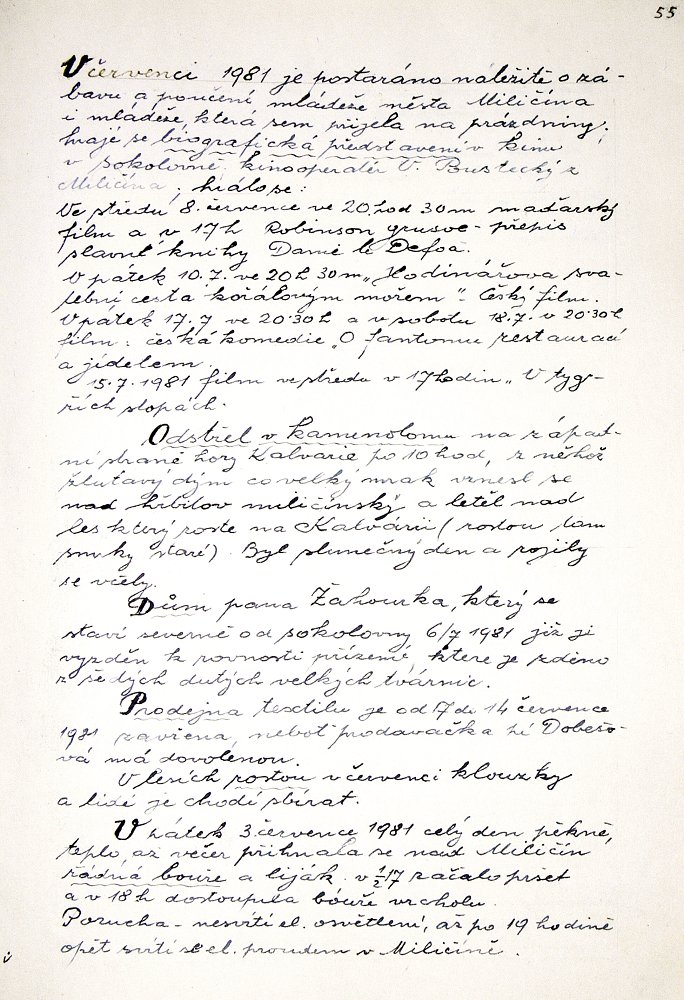 55
V červenci 1981 je postaráno náležitě o zá-
bavu a poučení mládeže města Miličína
i mládeže která sem přijela na prázdniny,
hraje se biografická představení v kinu
v sokolovně kinooperatér V. Bustecký z
Miličína, hrálo se:
Ve středu 8. července ve 20 hod 30 m maďarský
film a v 17 h Robinson grusoe - přepis
slavné knihy Daniel Defoa.
V pátek 10.7. ve 20 h 30 m „Hodinářova sva-
tební cesta korálovým mořem“. Český film.
V pátek 17.7 ve 20.30 h a v sobotu 18.7. v 20.30 h
film: česká komedie „O fantomu restaurací
a jídelem.
15.7.1981 film ve středu v 17 hodin „V tyg-
řích stopách.
Odstřel v kamenolomu na západ-
ní straně hory Kalvarie po 10 hod, z něhož
žlutavý dým co velký mrak vznesl se
nad hřbitov miličínský a letěl nad
les který roste na Kalvárii (rostou tam
smrky staré). Byl slunečný den a rojily
se včely.
Dům pana Žahourka, který se
staví severně od sokolovny 6/7 1981 již je
vyzděn k rovnosti přízemí, ktere je zděno
z šetých dutých velkých tvárnic.
Prodejna textilu je od 7 do 14 července
1981 zavřena, neboť prodavačka Dobešo-
vá má dovolenou.
V lesích rostou v červenci klouzky
a lidé je chodí sbírat.
V pátek 3. července 1981 celý den pěkně,
teplo, až večer přihnala se nad Miličín
řádná bouře a liják. v ½17 začalo pršet
a v 18 h dostoupila bouře vrcholu.
Porucha - nesvítí el. osvětlení, až po 19 hodině
opět svítí se el. proudem v Miličíně.